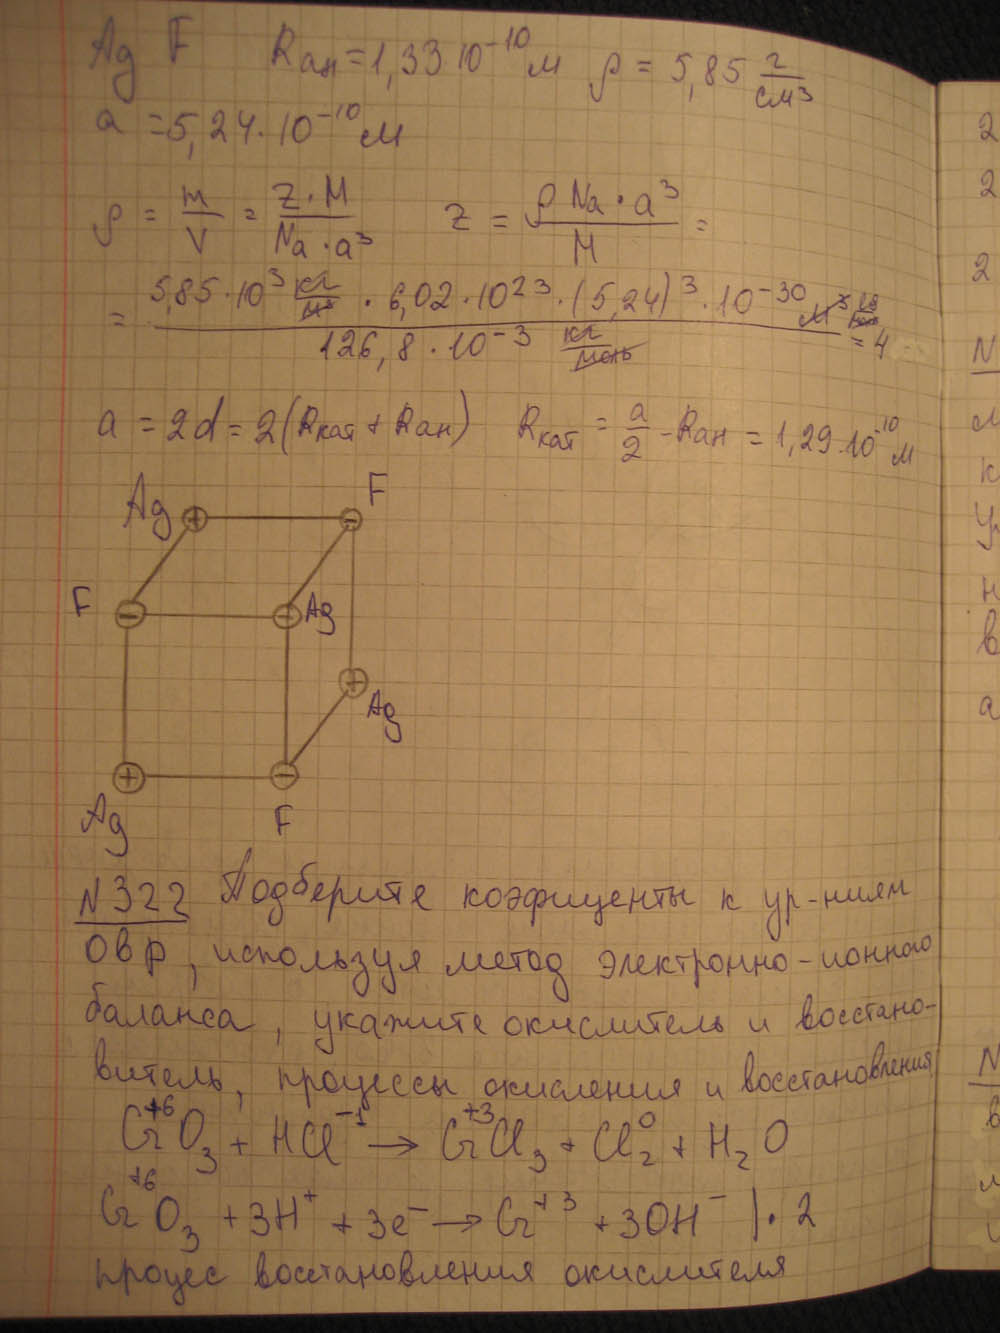 Ag F Rан = 1,33 10⁻¹⁰ м ρ = 5,85 г/см³
a = 5,24 · 10⁻¹⁰ м
ρ = m/V = Z · M / Na · a³ Z = ρ Na · a³ / M =
= 5,85 · 10³ кг/м³ · 6,02 · 10²³ · (5,24)³ · 10⁻³⁰ м³ / 126,8 · 10⁻³ кг/моль = 4
a = 2d = 2(Rкат + Rан) Rкат = a/2 - Rан = 1,29 · 10⁻¹⁰ м
Ag + - F
F - + Ag
+ Ag
+ -
Ag F
N322 Подберите коэфициенты к ур-ниям
ОВР, используя метод электронно-ионного
баланса, укажите окислитель и восстано-
витель, процессы окисления и восстановления
Cr⁺⁶O₃ + HCl⁻¹ → Cr⁺³Cl₃ + Cl₂⁰ + H₂O
Cr⁺⁶O₃ + 3H⁺ + 3e⁻ → Cr⁺³ + 3OH⁻ | · 2
процес восстановления окислителя
2
2
2
N
к
у
н
в
а
N
в